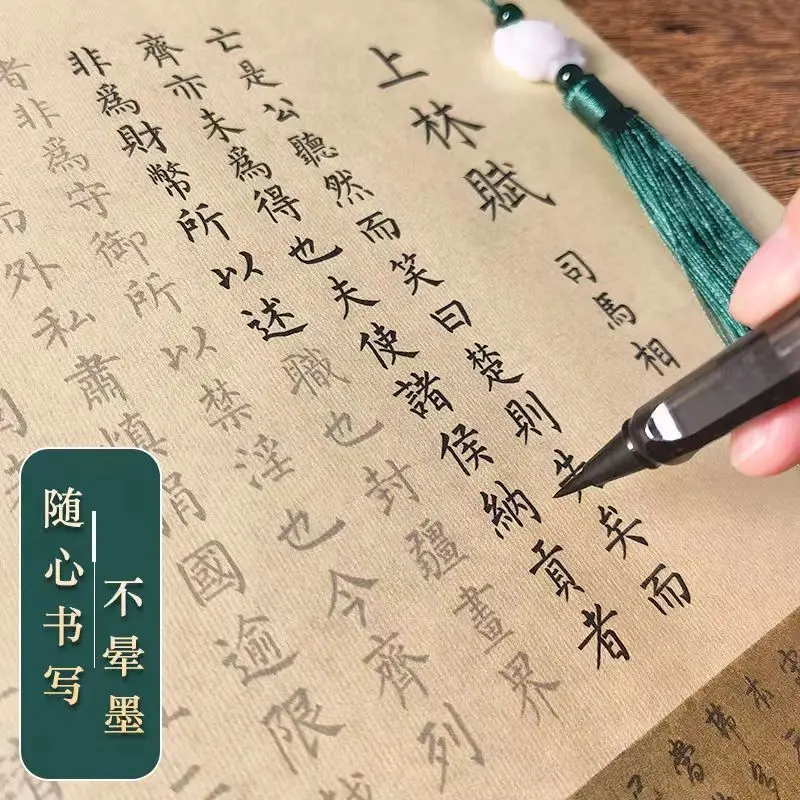 上林賦
司馬相
亡是公聽然而笑曰楚則失矣而
齊亦未爲得也夫使諸侯納貢者
非爲財幣所以述職也封疆畫界
者非爲守御所以禁淫也今齊列
而外私肅慎捐國逾限
随心书写
不晕墨